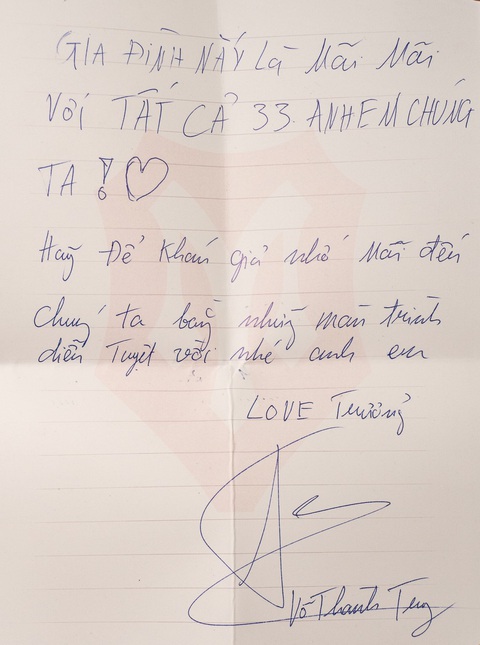 GIA ĐÌNH NÀY Là Mãi Mãi
Với TẤT CẢ 33 ANH EM CHÚNG
TA !♡
Hãy Để Khán giả nhớ Mãi đến
Chúng ta bằng những màn trình
diễn Tuyệt vời nhé anh em
LOVE Trưởng
Võ Thanh